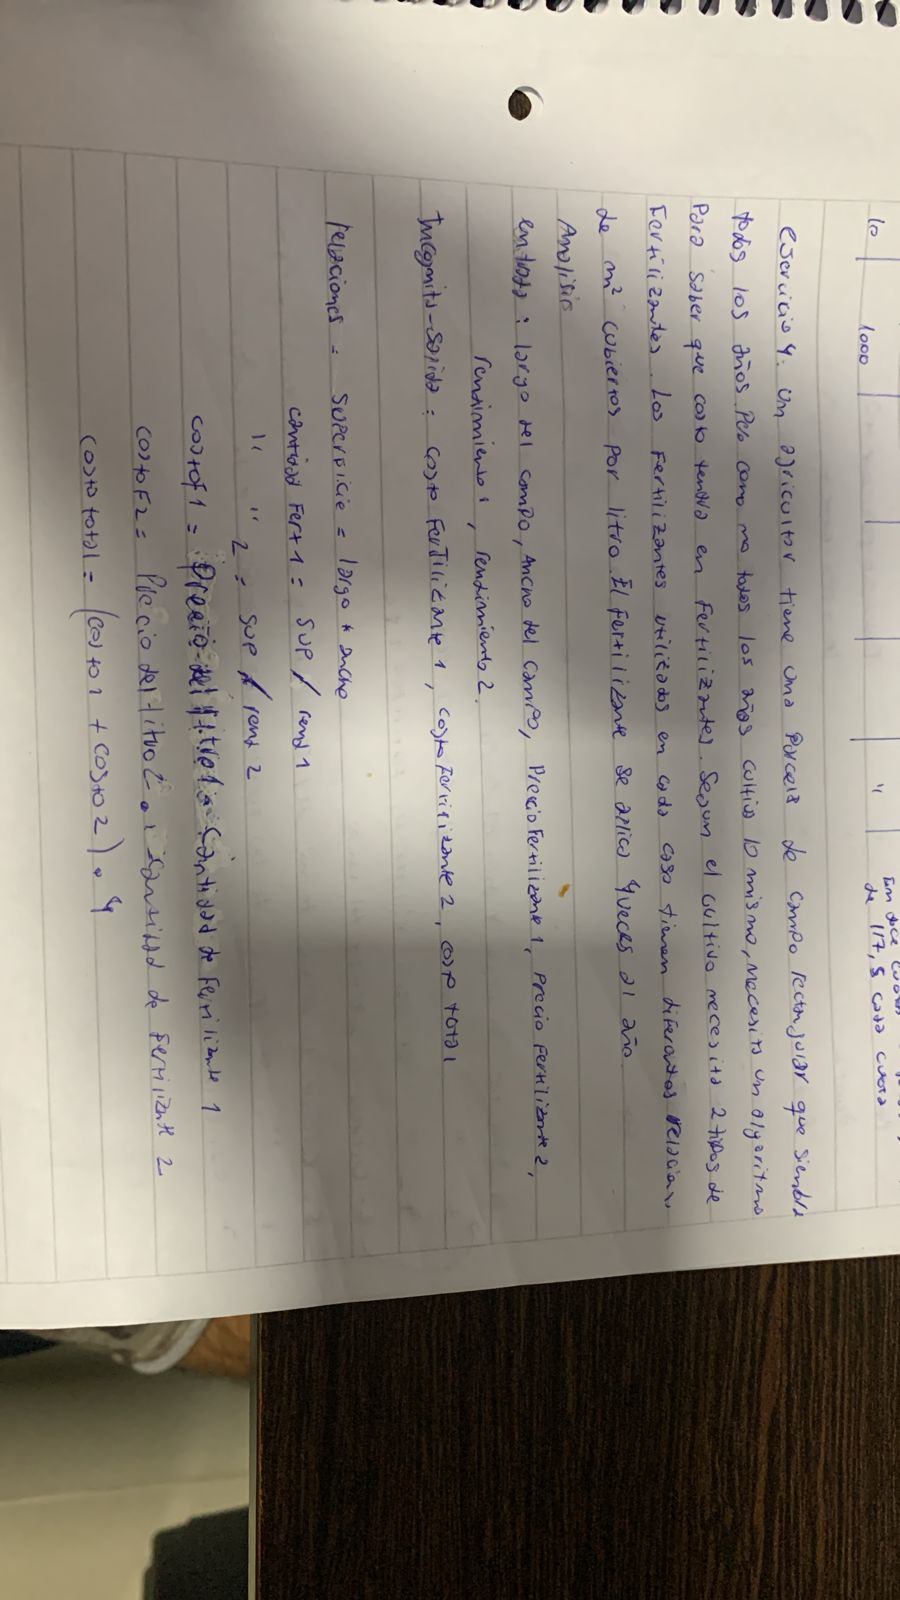 10 1000 "
de 117,5 cada cuota
ejercicio 4. Un agricultor tiene una parcela de campo rectangular que siembra
todos los años. Pero como no todos los años cultiva lo mismo, necesita un algoritmo
Para saber que costo tendra en Fertilizantes. Segun el cultivo necesita 2 tipos de
Fertilizantes. Los Fertilizantes utilizados en cada caso tienen diferentes
de m² cubiertos por litro. El fertilizante se aplica 4 veces al año.
Analisis
entrada: largo del campo, ancho del campo, Precio Fertilizante 1, precio Fertilizante 2,
rendimiento 1, rendimiento 2.
Incognita-Salida: costo Fertilizante 1, costo Fertilizante 2, costo total
relaciones = superficie = largo * ancho
cantidad Fert 1 = SUP / rend 1
" " 2 = SUP / rend 2
costo F1 = precio del litro 1 * Cantidad de Fertilizante 1
costo F2 = Precio del litro 2 * cantidad de Fertilizante 2
costo total = (costo 1 + costo 2) * 4